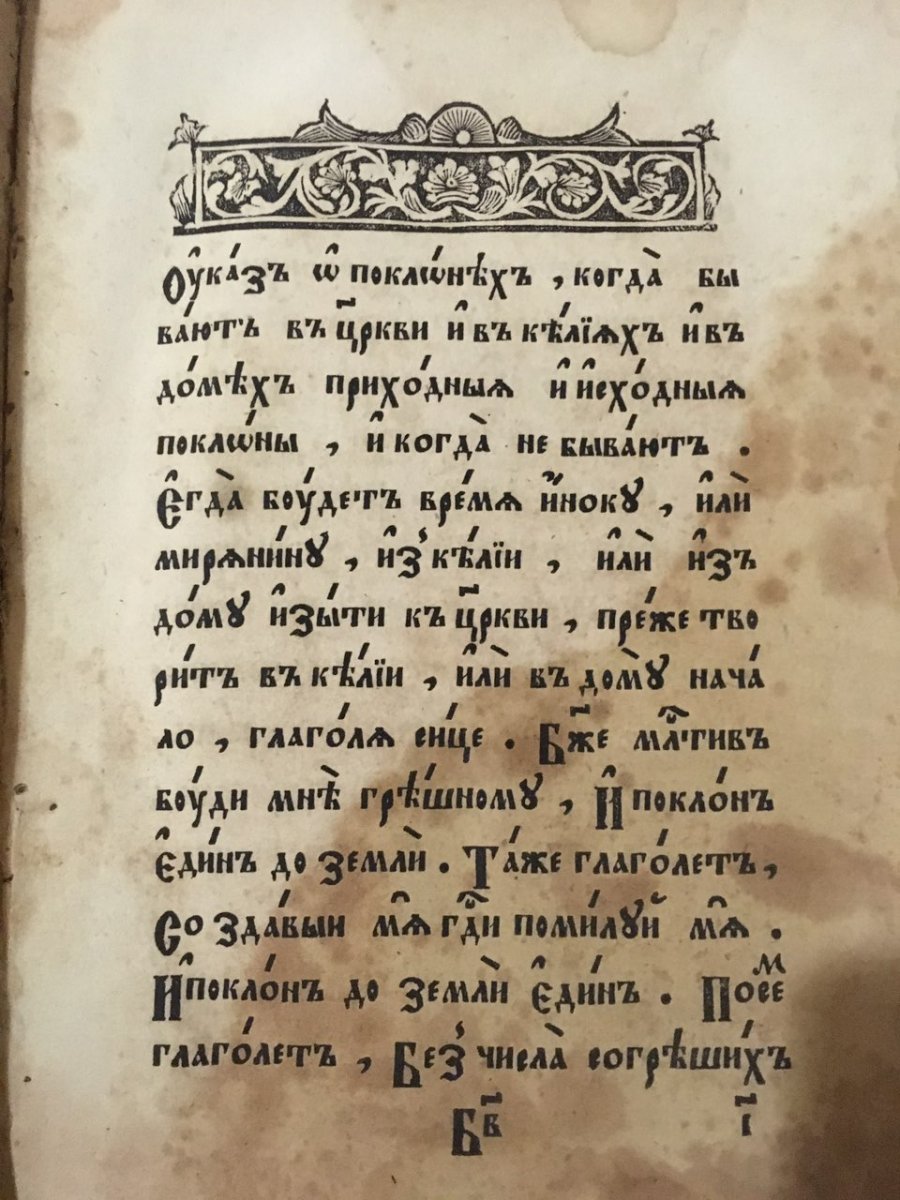 Оу҆ка́зъ ѡ҆ поклѡ́нѣхъ , когда̀ бы
ваютъ въ цр҃кви и҆ въ кѣ́лїѧхъ и҆ въ
до́мѣхъ прихо́дныѧ и҆ и҆схо́дныѧ
поклѡ́ны , и҆ когда̀ не быва́ютъ .
Є҆гда̀ боу́детъ вре́мѧ и҆́ноку , и҆лѝ
мирѧни́ну , и҆з̾ кѣ́лїи , и҆лѝ и҆зъ
до́му и҆зы́ти къ цр҃кви , пре́же тво
ри́тъ въ кѣ́лїи , и҆лѝ въ дому̀ нача́
ло , глаго́лѧ си́це . Бж҃е млⷭ҇тивъ
боу́ди мнѣ̀ грѣ́шному , И҆ покло́нъ
є҆ди́нъ до землѝ . Та́же глаго́летъ ,
Созда́выи мѧ҆ гдⷭ҇и поми́луй мѧ҆ .
И҆ покло́нъ до землѝ є҆ди́нъ . Посеⷨ
глаго́летъ , Без̾ числа̀ согрѣши́хъ
Бв҃ і҃